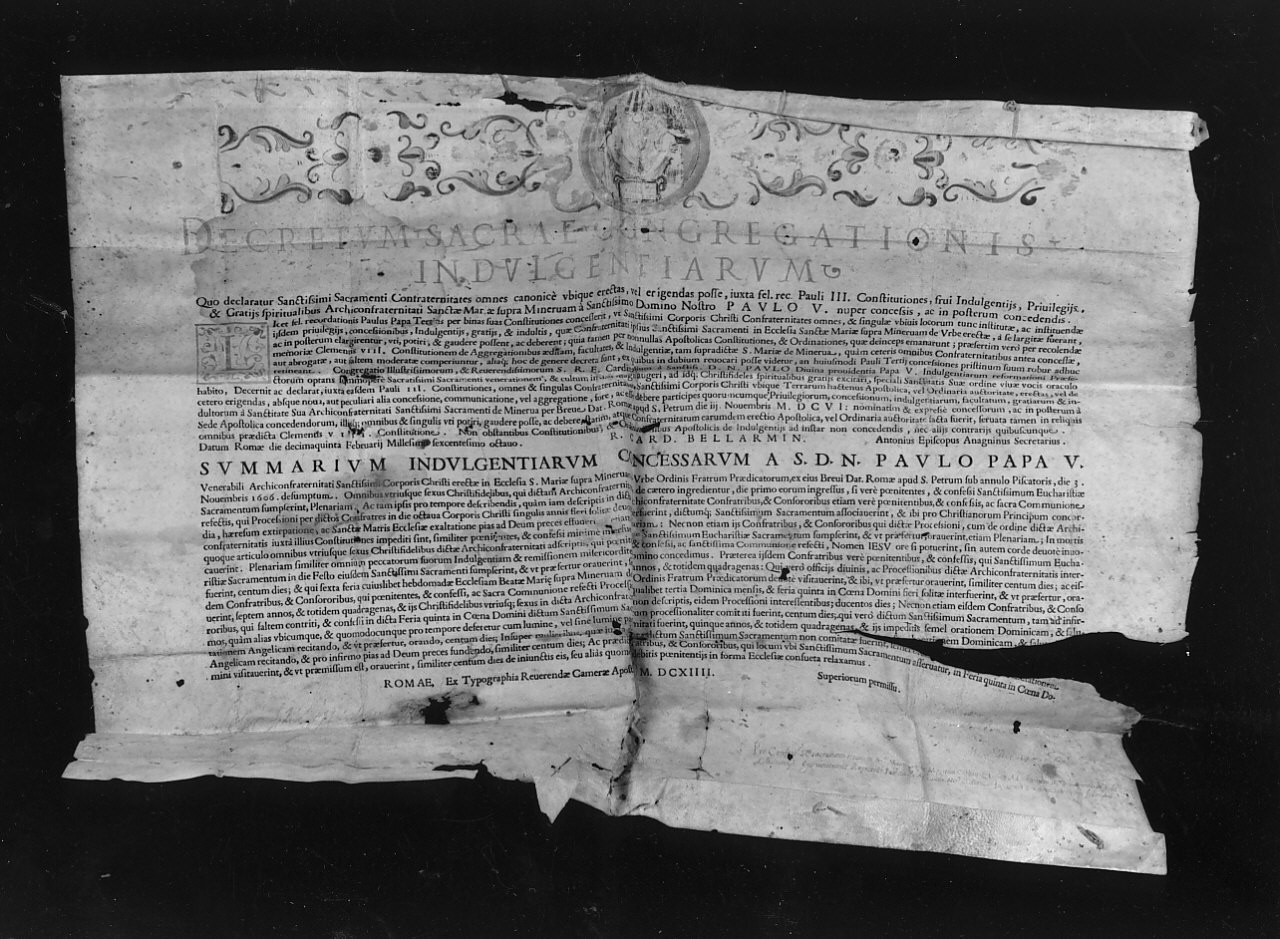 DECRETVM SACRAE CONGREGATIONIS
INDVLGENTIARVM
Quo declaratur Sanctissimi Sacramenti Confraternitates omnes canonicè vbique erectas, vel erigendas posse, iuxta fel. rec. Pauli III. Constitutiones, frui Indulgentijs, Priuilegijs,
& Gratijs spiritualibus Archiconfraternitati Sanctæ Mariæ supra Mineruam à Sanctissimo Domino Nostro PAVLO V. nuper concessis, ac in posterum concedendis.
LIcet fel. recordationis Paulus Papa Tertius per binas suas Constitutiones concesserit, vt Sanctissimi Corporis Christi Confraternitates omnes, & singulæ vbiuis locorum tunc institutæ, ac instituendæ
ijsdem priuilegijs, concessionibus, Indulgentijs, gratijs, & indultis, quæ Confraternitati ipsius Sanctissimi Sacramenti in Ecclesia Sanctæ Mariæ supra Mineruam de Vrbe erectæ, à se largitæ fuerant,
ac in posterum elargirentur, vti, potiri, & gaudere possent, ac deberent; quia tamen per nonnullas Apostolicas Constitutiones, & Ordinationes, quæ deinceps emanarunt; præsertim verò per recolendæ
memoriæ Clementis VIII. Constitutionem de Aggregationibus æditam, facultates, & Indulgentiæ, tam supradictæ S. Mariæ de Minerua, quàm ceteris omnibus Confraternitatibus antea concessæ,
aut abrogatæ, aut saltem moderatæ comperiuntur, aliaq; hoc de genere decreta sunt, ex quibus in dubium reuocari posse videtur, an huiusmodi Pauli Tertij concessiones pristinum suum robur adhuc
retineant. Congregatio Illustrissimorum, & Reuerendissimorum S. R. E. Card. à Sanctiss. D. N. PAVLO Diuina prouidentia Papa V. Indulgentiarum reformationi Præfe-
ctorum optans summopere Sacratissimi Sacramenti venerationem, & cultum augeri, ad idq; Christifideles spiritualibus gratijs excitari, speciali Sanctitatis Suæ ordine viuæ vocis oraculo
habito, Decernit ac declarat, iuxta easdem Pauli III. Constitutiones, omnes & singulas Confraternitates Sanctissimi Corporis Christi vbique Terrarum hactenus Apostolica, vel Ordinaria auctoritate, erectas, vel de
cetero erigendas, absque noua, aut peculiari alia concessione, communicatione, vel aggregatione, fore, ac esse debere participes quorumcumque Priuilegiorum, concessionum, indulgentiarum, facultatum, gratiarum & in-
dultorum à Sanctitate Sua Archiconfraternitati Sanctissimi Sacramenti de Minerua per Breue Dat. Romæ apud S. Petrum die iij Nouembris M. DCVI: nominatim & expressè concessorum, ac in posterum à
Sede Apostolica concedendorum, illisq; omnibus & singulis vti potiri, gaudere posse, ac debere Confraternitatum earumdem erectio Apostolica, vel Ordinaria auctoritate facta fuerit, seruata tamen in reliquis
omnibus prædicta Clementis VIII. Constitutione. Non obstantibus Constitutionibus, & Apostolicis de Indulgentijs ad instar non concedendis, nec alijs contrarijs quibuscunque.
Datum Romæ die decimaquinta Februarij Millesimo sexcentesimo octauo. R. CARD. BELLARMIN. Antonius Episcopus Anagninus Secretarius.
SVMMARIVM INDVLGENTIARVM CONCESSARVM A S. D. N. PAVLO PAPA V.
Venerabili Archiconfraternitati Sanctissimi Corporis Christi erectæ in Ecclesia S. Mariæ supra Mineruam Vrbe Ordinis Fratrum Prædicatorum, ex eius Breui Dat. Romæ apud S. Petrum sub annulo Piscatoris, die 3.
Nouembris 1606. desumptum. Omnibus vtriusque sexus Christifidelibus, qui dictam Archiconfraternitatem de cætero ingredientur, die primo eorum ingressus, si verè pœnitentes, & confessi Sanctissimum Eucharistiæ
Sacramentum sumpserint, Plenariam. Ac tam ipsis pro tempore describendis, quàm iam descriptis in dicta Archiconfraternitate Confratribus, & Consororibus etiam verè pœnitentibus, & confessis, ac sacra Communione
refectis, qui Processioni per dictos Confratres in die octaua Corporis Christi singulis annis fieri solitæ deuotè interfuerint, dictumq; Sanctissimum Sacramentum associauerint, & ibi pro Christianorum Principum concor-
dia, hæresum extirpatione, ac Sanctæ Matris Ecclesiæ exaltatione pias ad Deum preces effuderint, Plenariam: Necnon etiam ijs Confratribus, & Consororibus qui dictæ Processioni, cum de ordine dictæ Archi-
confraternitatis iuxta illius Constitutiones impediti sint, similiter pœnitentes, & confessi minime interfuerint Sanctissimum Eucharistiæ Sacramentum sumpserint, & vt præfertur orauerint, etiam Plenariam: In mortis
quoque articulo omnibus vtriusque sexus Christifidelibus dictæ Archiconfraternitati adscriptis, qui pœnitentes & confessi, ac sanctissima Communione refecti, Nomen IESV ore si potuerint, sin autem corde deuotè inuo-
cauerint. Plenariam similiter omnium peccatorum suorum Indulgentiam & remissionem misericorditer in Domino concedimus. Præterea ijsdem Confratribus verè pœnitentibus, & confessis, qui Sanctissimum Eucha-
ristiæ Sacramentum in die Festo eiusdem Sanctissimi Sacramenti sumpserint, & vt præfertur orauerint, annos, & totidem quadragenas: Qui verò officijs diuinis, ac Processionibus dictæ Archiconfraternitatis inter-
fuerint, centum dies; & qui sexta feria cuiuslibet hebdomadæ Ecclesiam Beatæ Mariæ supra Mineruam dicti Ordinis Fratrum Prædicatorum deuotè visitauerint, & ibi, vt præfertur orauerint, similiter centum dies; ac eis-
dem Confratribus, & Consororibus, qui pœnitentes, & confessi, ac Sacra Communione refecti Processioni qualibet tertia Dominica mensis, & feria quinta in Cœna Domini fieri solitæ interfuerint, & vt præfertur, ora-
uerint, septem annos, & totidem quadragenas, & ijs Christifidelibus vtriusq; sexus in dicta Archiconfraternitate non descriptis, eidem Processioni interessentibus; ducentos dies; Necnon etiam eisdem Confratribus, & Conso
roribus, qui saltem contriti, & confessi in dicta Feria quinta in Cœna Domini dictum Sanctissimum Sacramentum processionaliter comitati fuerint, centum dies, qui verò dictum Sanctissimum Sacramentum, tam ad infir-
mos, quàm alias vbicumque, & quomodocunque pro tempore deferetur cum lumine, vel sine lumine comitati fuerint, quinque annos, & totidem quadragenas, & ijs impeditis semel orationem Dominicam, & salu-
tationem Angelicam recitando, & vt præfertur, orando, centum dies; Insuper dictum Sanctissimum Sacramentum non comitatæ fuerint, semel orationem Dominicam, & salutationem
Angelicam recitando, & pro infirmo pias ad Deum preces fundendo, similiter centum dies; Ac prædictis Confratribus, & Consororibus, qui locum vbi Sanctissimum Sacramentum asseruatur, in Feria quinta in Cœna Do-
mini visitauerint, & vt præmissum est, orauerint, similiter centum dies de iniunctis eis, seu aliàs quomodolibet debitis pœnitentijs in forma Ecclesiæ consueta relaxamus.
ROMAE, Ex Typographia Reuerendæ Cameræ Apost. M. DCXIIII. Superiorum permissu.